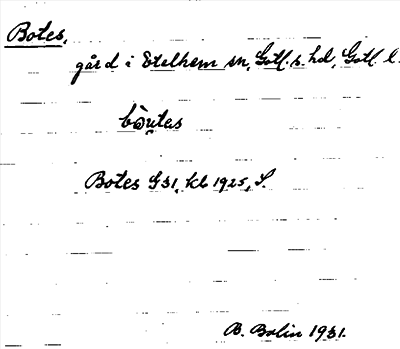 Botes,
gård i Etelhem sn, Gotl. s. hd, Gotl. l.
bòutas
Botes G 31, kb 1925, S.
B. Bolin 1931.